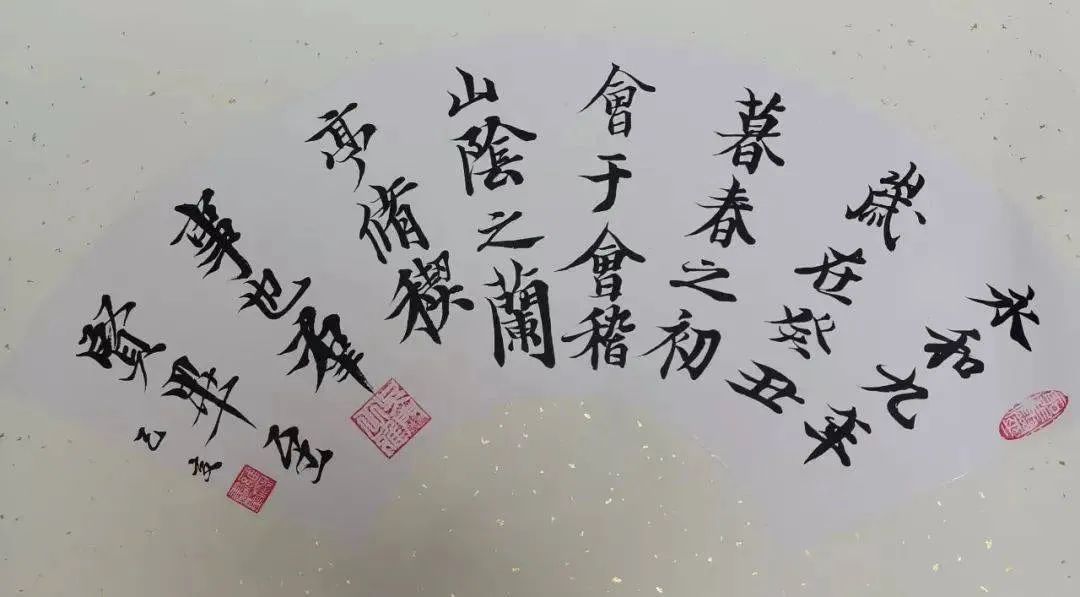 永和九年
歲在癸丑
暮春之初
會于會稽
山陰之蘭
亭脩稧
事也群
賢畢至
己亥